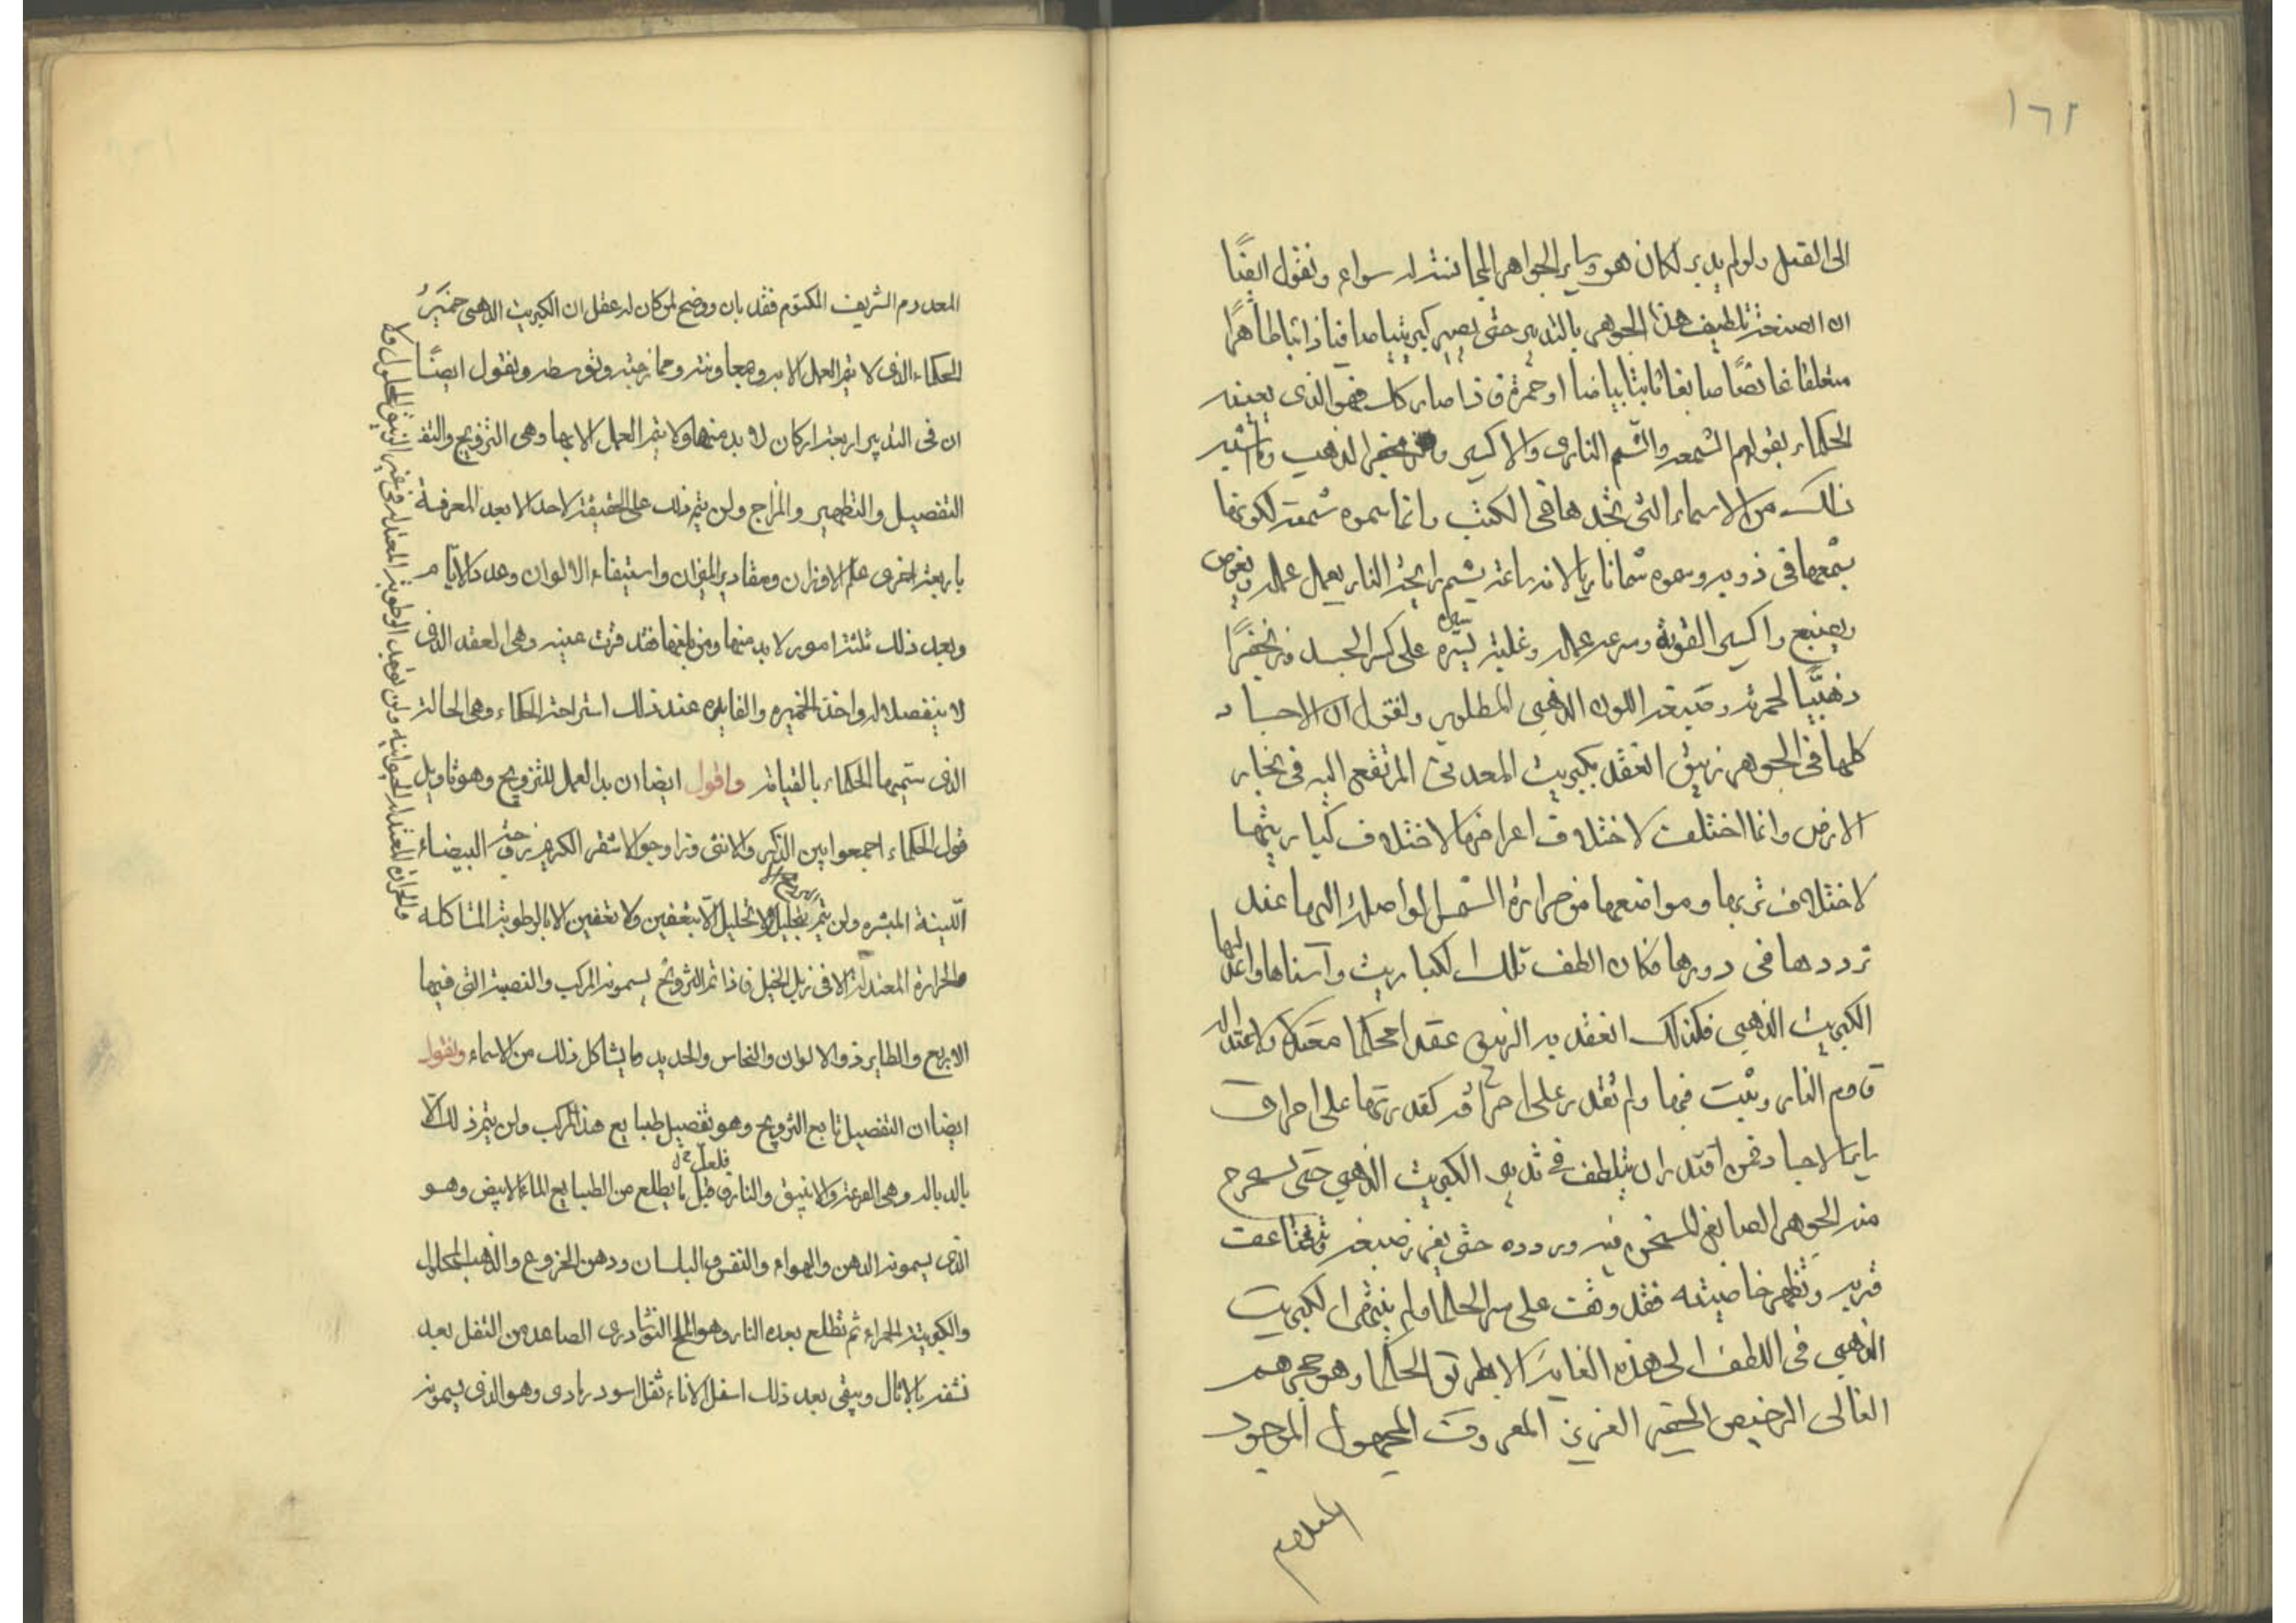 ١٦٢
الى الفعل ولو لم يدبر لكان هو وساير الجواهر المجانسة له سواء ونقول ايضًا
ان الصنعة تلطيف هذا الجوهر بالتدبير حتى يصير كبريتيا صافيا ذائبا طاهرًا
متعلقا غائضًا صابغا ثابتا بياضا او حمرة فاذا صار كذلك فهو الذى يعنيه
الحكماء بقولهم الشمعه والسم النارى والاكسير وزنجفر الذهب وما اشبه
ذلك من الاسماء التى تجدها فى الكتب وانما سموه شمعة لكونها
بشمعها فى ذوبه وسموه سما ناريا لانه ساعة يشم رايحة النار يعمل عمله ويغوص
ويصبغ واكسير لقوته وسرعه عماله وغلبة يسيره على كثير الجسد وزنجفرًا
ذهبيًا لحمرته وصبغه اللون الذهبى المطلوب ونقول ان الاجساد
كلها فى الجوهر زيبق انعقد بكبريت المعدن المرتفع اليه فى بخار
الارض وانما اختلفت لاختلاف اعراضها لاختلاف كباريتها
لاختلاف تربها ومواضعها من حرارة الشمس الواصلة اليها عند
ترددها فى دورها فكان الطف تلك الكباريت واسناها واعدلها
الكبريت الذهبى فكذلك انعقد به الزيبق عقدا محكما معتدلا ولاعتداله
قاوم النار وثبت فيها ولم تقدر على احراقه كقدرتها على احراق
ساير الاجساد فمن اقتدر ان يتلطف فى تدبير الكبريت الذهبى حتى يستخرج
منه الجوهر الصابغ المستجن فيه ويردده حتى يغزر صبغه وتتضاعف
قوته وتظهر خاصيته فقد وقف على سر الحكما ولم ينتهى الكبريت
الذهبى فى اللطف الى هذه الغاية الا بطريق الحكما وهو حجرهم
الغالى الرخيص الحقير العزيز المعروف المجهول الموجود
المعدوم
المعدوم الشريف المكتوم فقد بان ووضح لمن كان له عقل ان الكبريت الذهبى خميرُ
الحكماء الذى لا يتم العمل الا به وبمعاونته وممازجته وتوسطه ونقول ايضًا
ان فى التدبير اربعة اركان لابد منها ولا يتم العمل الا بها وهى التزويج والتفـ
التفصيل والتطهير والمزاج ولن يتم ذلك على الحقيقة لاحد الا بعد المعرفة
باربعة اخرى علم الاوزان ومقادير الميزان واستيفاء الالوان وعدد الايام
وبعد ذلك ثلثة امور لابد منها ومن بلغها فقد قرت عينه وهى العقد الذى
لا ينفصل له واخذ الخميره والفايده عند ذلك استراحة الحكماء وهى الحالة
الذى سميها الحكماء بالقيامة واقول ايضا ان بدا العمل للتزويج وهو تاويل
قول الحكماء اجمعوا بين الذكر والانثى وزاوجوا الاشقر الكريم زوجته البيضاء
اللينة المبشره ولن يتم بتحليل ولا تحليل الا بتعفين ولا تعفين الا بالرطوبة المشاكله
والحرارة المعتدلة الا فى زبل الخيل فاذا تم التزويج يسمونه المركب والنصبة التى فيها
الاربع والطاير ذو الالوان والنحاس والحديد وما يشاكل ذلك من الاسماء ونقول
ايضا ان التفصيل تابع التزويج وهو تفصيل طبايع هذا المركب ولن يتم ذلك الا
بالدباله وهى القرعة والانبيق والنار فاول ما يطلع من الطبايع الماء الابيض وهو
الذى يسمونه الدهن والهواء والنفس والبلسان ودهن الخروع والذهب المحلول
والكبريتة الحمراء ثم تطلع بعده النار وهو الملح النوشادرى الصاعد من الثفل بعد
نشفه بالاثال ويبقى بعد ذلك اسفل الاناء ثفل اسود رمادى وهو الذى يسمونه
ولن توجد الرطوبة المعتدلة فى غير الزيبق المحلول ولا
والحرارة المعتدلة الحيوانيه